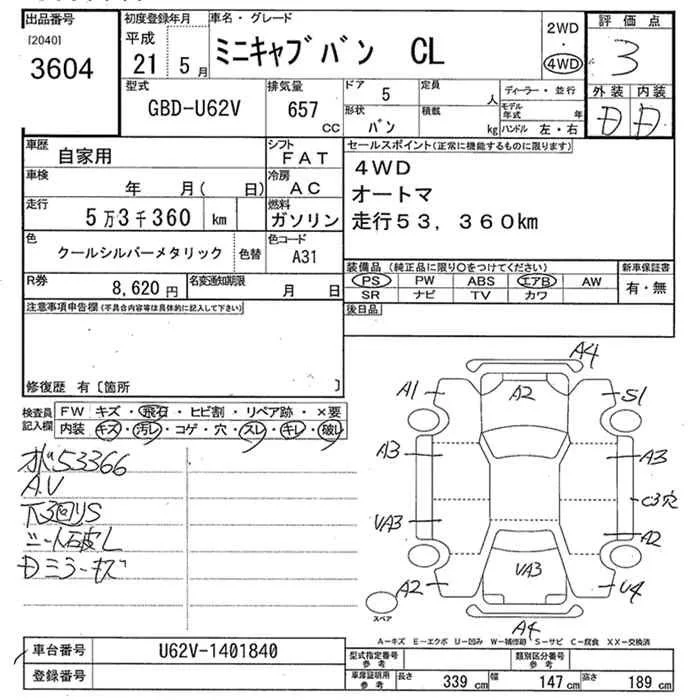 出品番号
[2040]
3604
初度登録年月
平成
21 5月
車名・グレード
ミニキャブバン CL
2WD
・
4WD
評価点
3
外装 内装
D D
型式
GBD-U62V
排気量
657
CC
ドア 5
形状 バン
定員 人
積載 kg
ディーラー・並行
モデル年式 年
ハンドル 左・右
車歴 自家用
シフト FAT
車検 年 月( 日)
冷房 AC
走行 5万3千360 km
燃料 ガソリン
色 クールシルバーメタリック 色替
色コード A31
R券 8,620円
名変通知期限 月 日
セールスポイント(正常に機能するものに限ります)
4WD
オートマ
走行53,360km
装備品 (純正品に限り○をつけてください)
PS PW ABS エアB AW
SR ナビ TV カワ
新車保証書
有・無
後日品
注意事項申告欄(不具合内容等は具体的に記入して下さい)
修復歴 有〔箇所 〕
検査員記入欄
FW キズ・飛石・ヒビ割・リペア跡・×要
内装 キズ・汚レ・コゲ・穴・スレ・キレ・破レ
53366
A.V
シート破レ
Dミラーキズ
A4
A1
A2
S1
A3
A3
C3穴
UA3
A2
A2
UA3
U4
A4
スペア
A-キズ E-エクボ U-凹み W-補修跡 S-サビ C-腐食 XX-交換済
車台番号 U62V-1401840
登録番号
型式指定番号 参考
類別区分番号 参考
車庫証明用 参考
長さ 339cm 幅 147cm 高さ 189cm